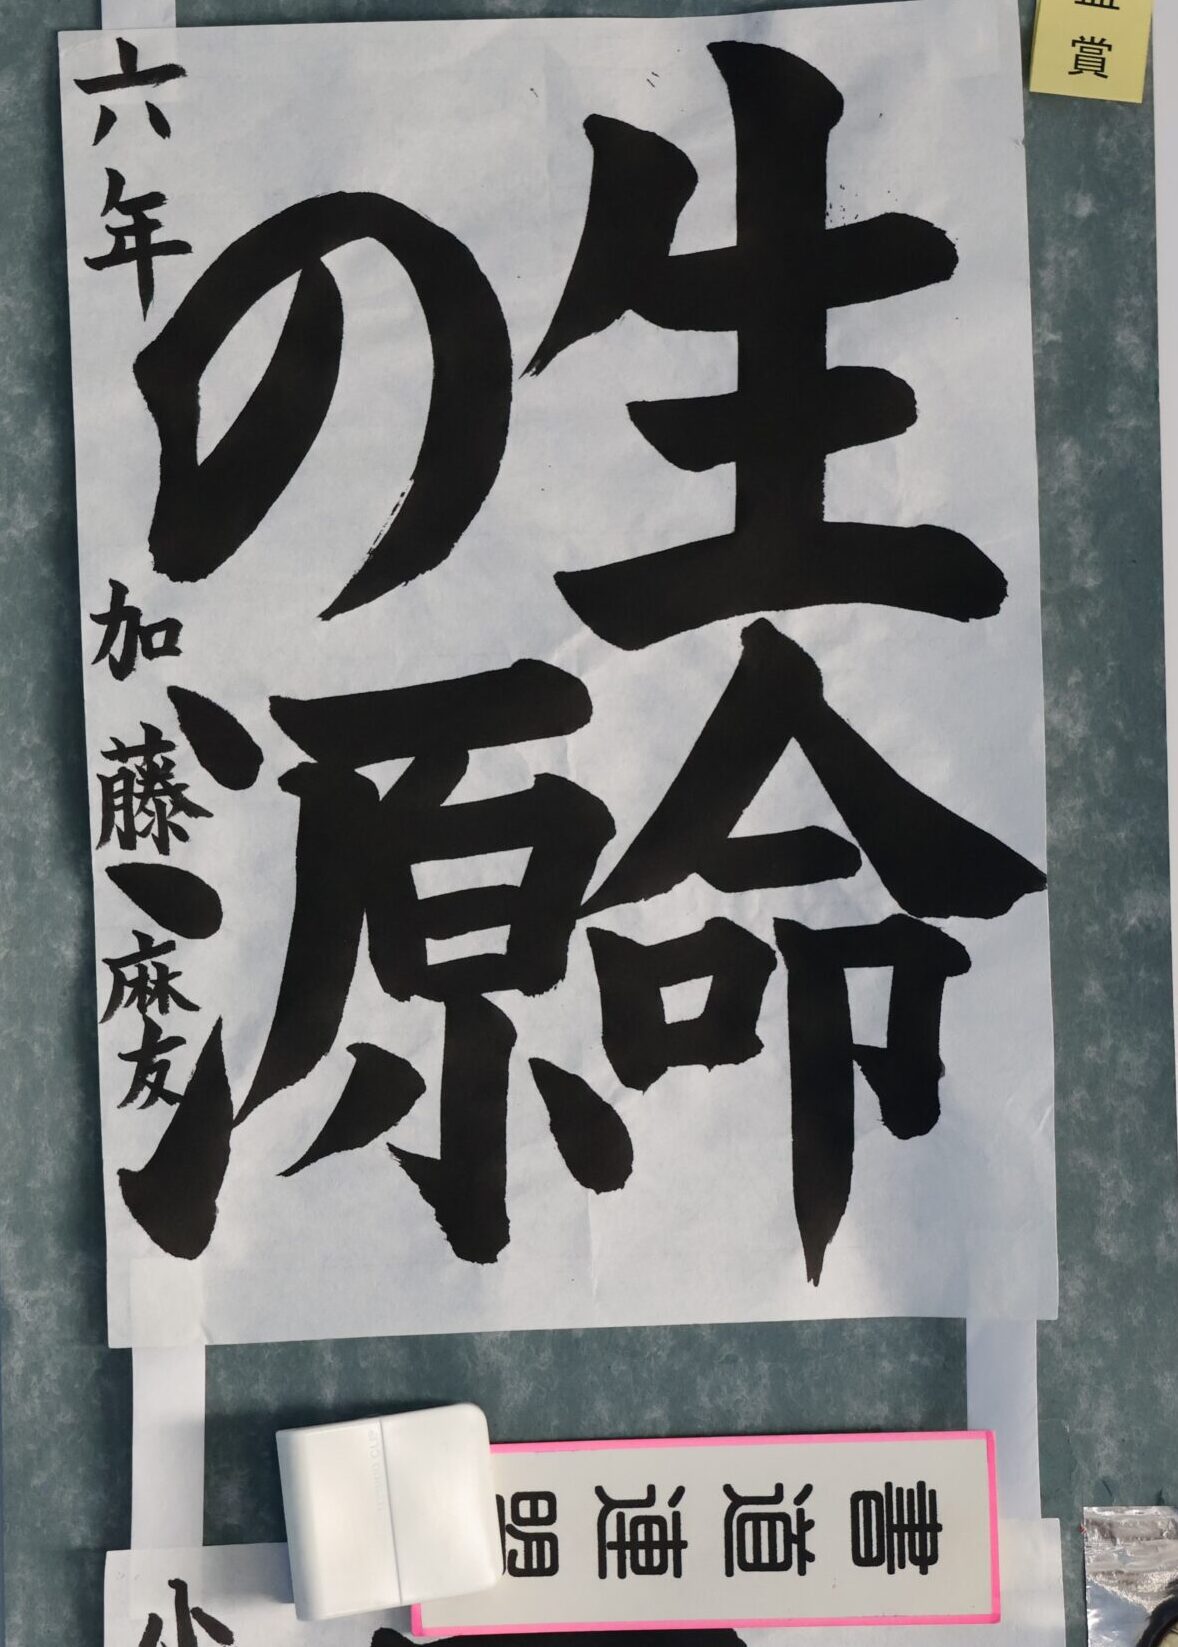 生命
の源
六年 加藤麻友
賞
書道連盟